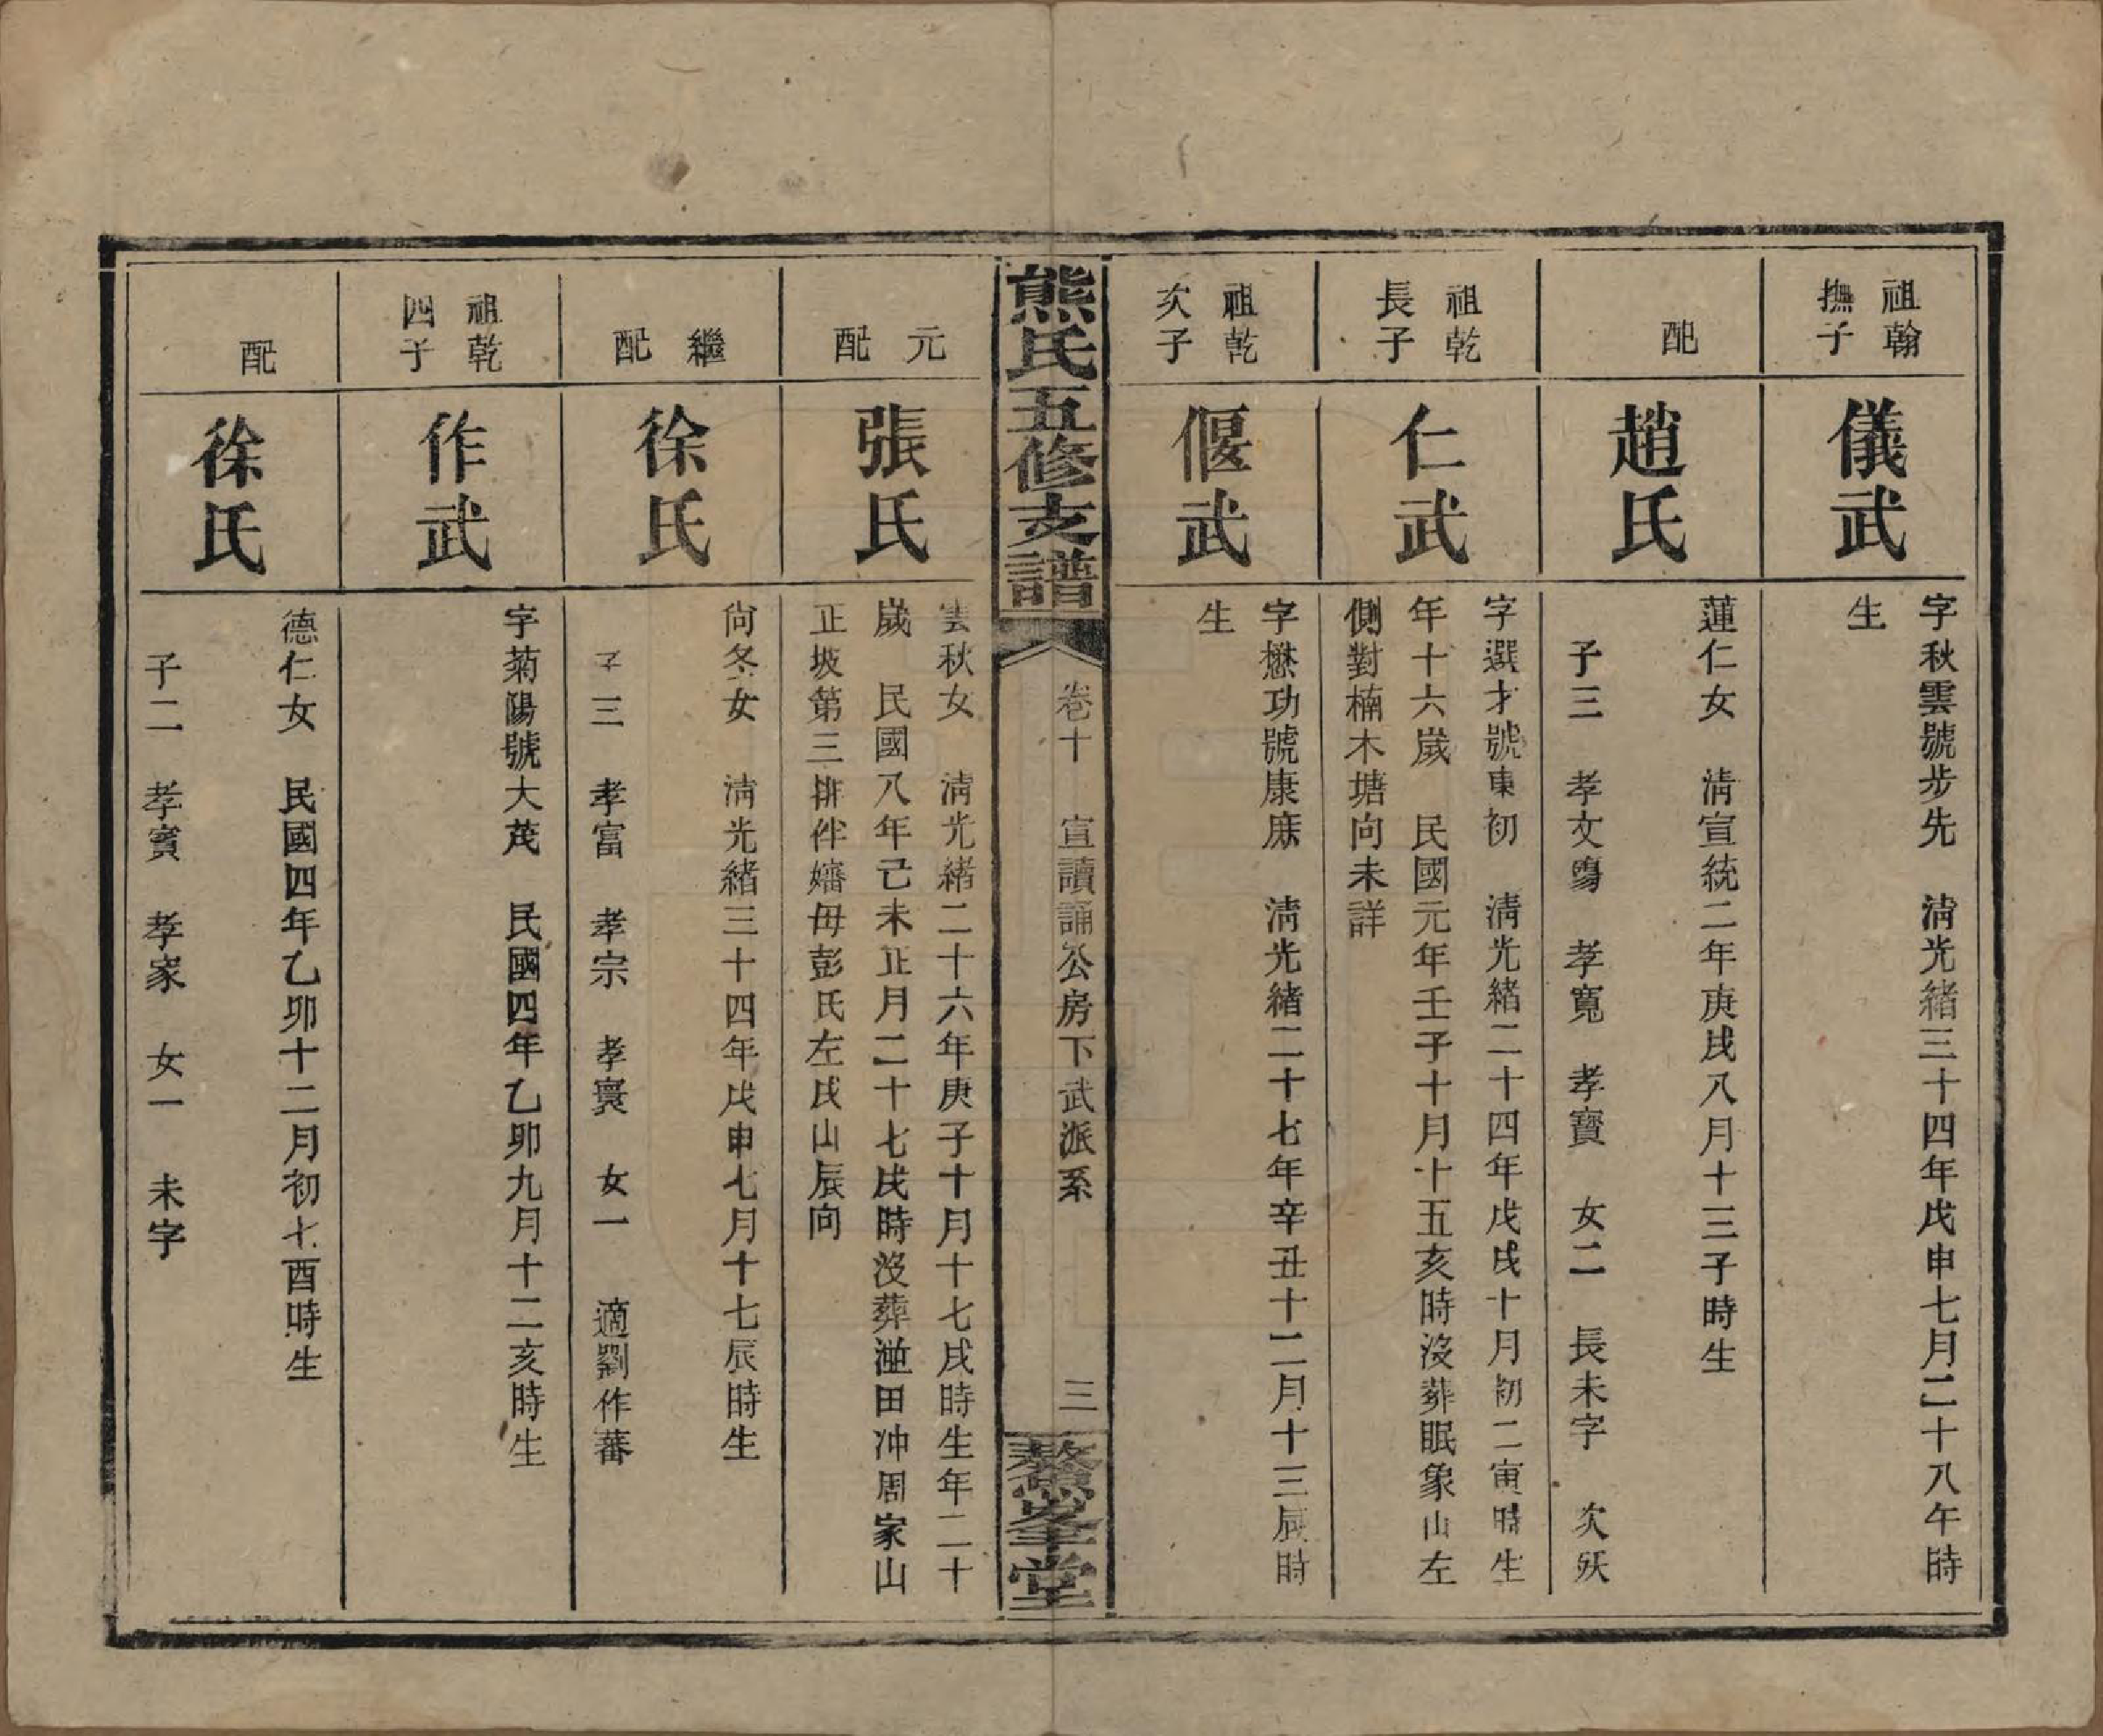 祖翰
撫子
儀武
字秋雲號步先　清光緒三十四年戊申七月二十八午時
生
配
趙氏
蓮仁女　清宣統二年庚戌八月十三子時生
子三　孝文殤　孝寬　孝寶　女二　長未字　次殀
祖乾
長子
仁武
字選才號東初　清光緒二十四年戊戌十月初二寅時生
年十六歲　民國元年壬子十月十五亥時沒葬眠象山左
側對楠木塘向未詳
祖乾
次子
偃武
字懋功號康庶　清光緒二十七年辛丑十二月十三辰時
生
熊氏五修支譜
卷十　宣讀誦公房下武派系　三
鰲峯堂
元
配
張氏
雲秋女　清光緒二十六年庚子十月十七戌時生年二十
歲　民國八年己未正月二十七戌時沒葬田冲周家山
正坡第三排伴嬸母彭氏左戌山辰向
繼
配
徐氏
尙冬女　清光緒三十四年戊申七月十七辰時生
子三　孝富　孝宗　孝寰　女一　適劉作蕃
祖乾
四子
作武
字菊陽號大茂　民國四年乙卯九月十二亥時生
配
徐氏
德仁女　民國四年乙卯十二月初七酉時生
子二　孝賓　孝家　女一　未字